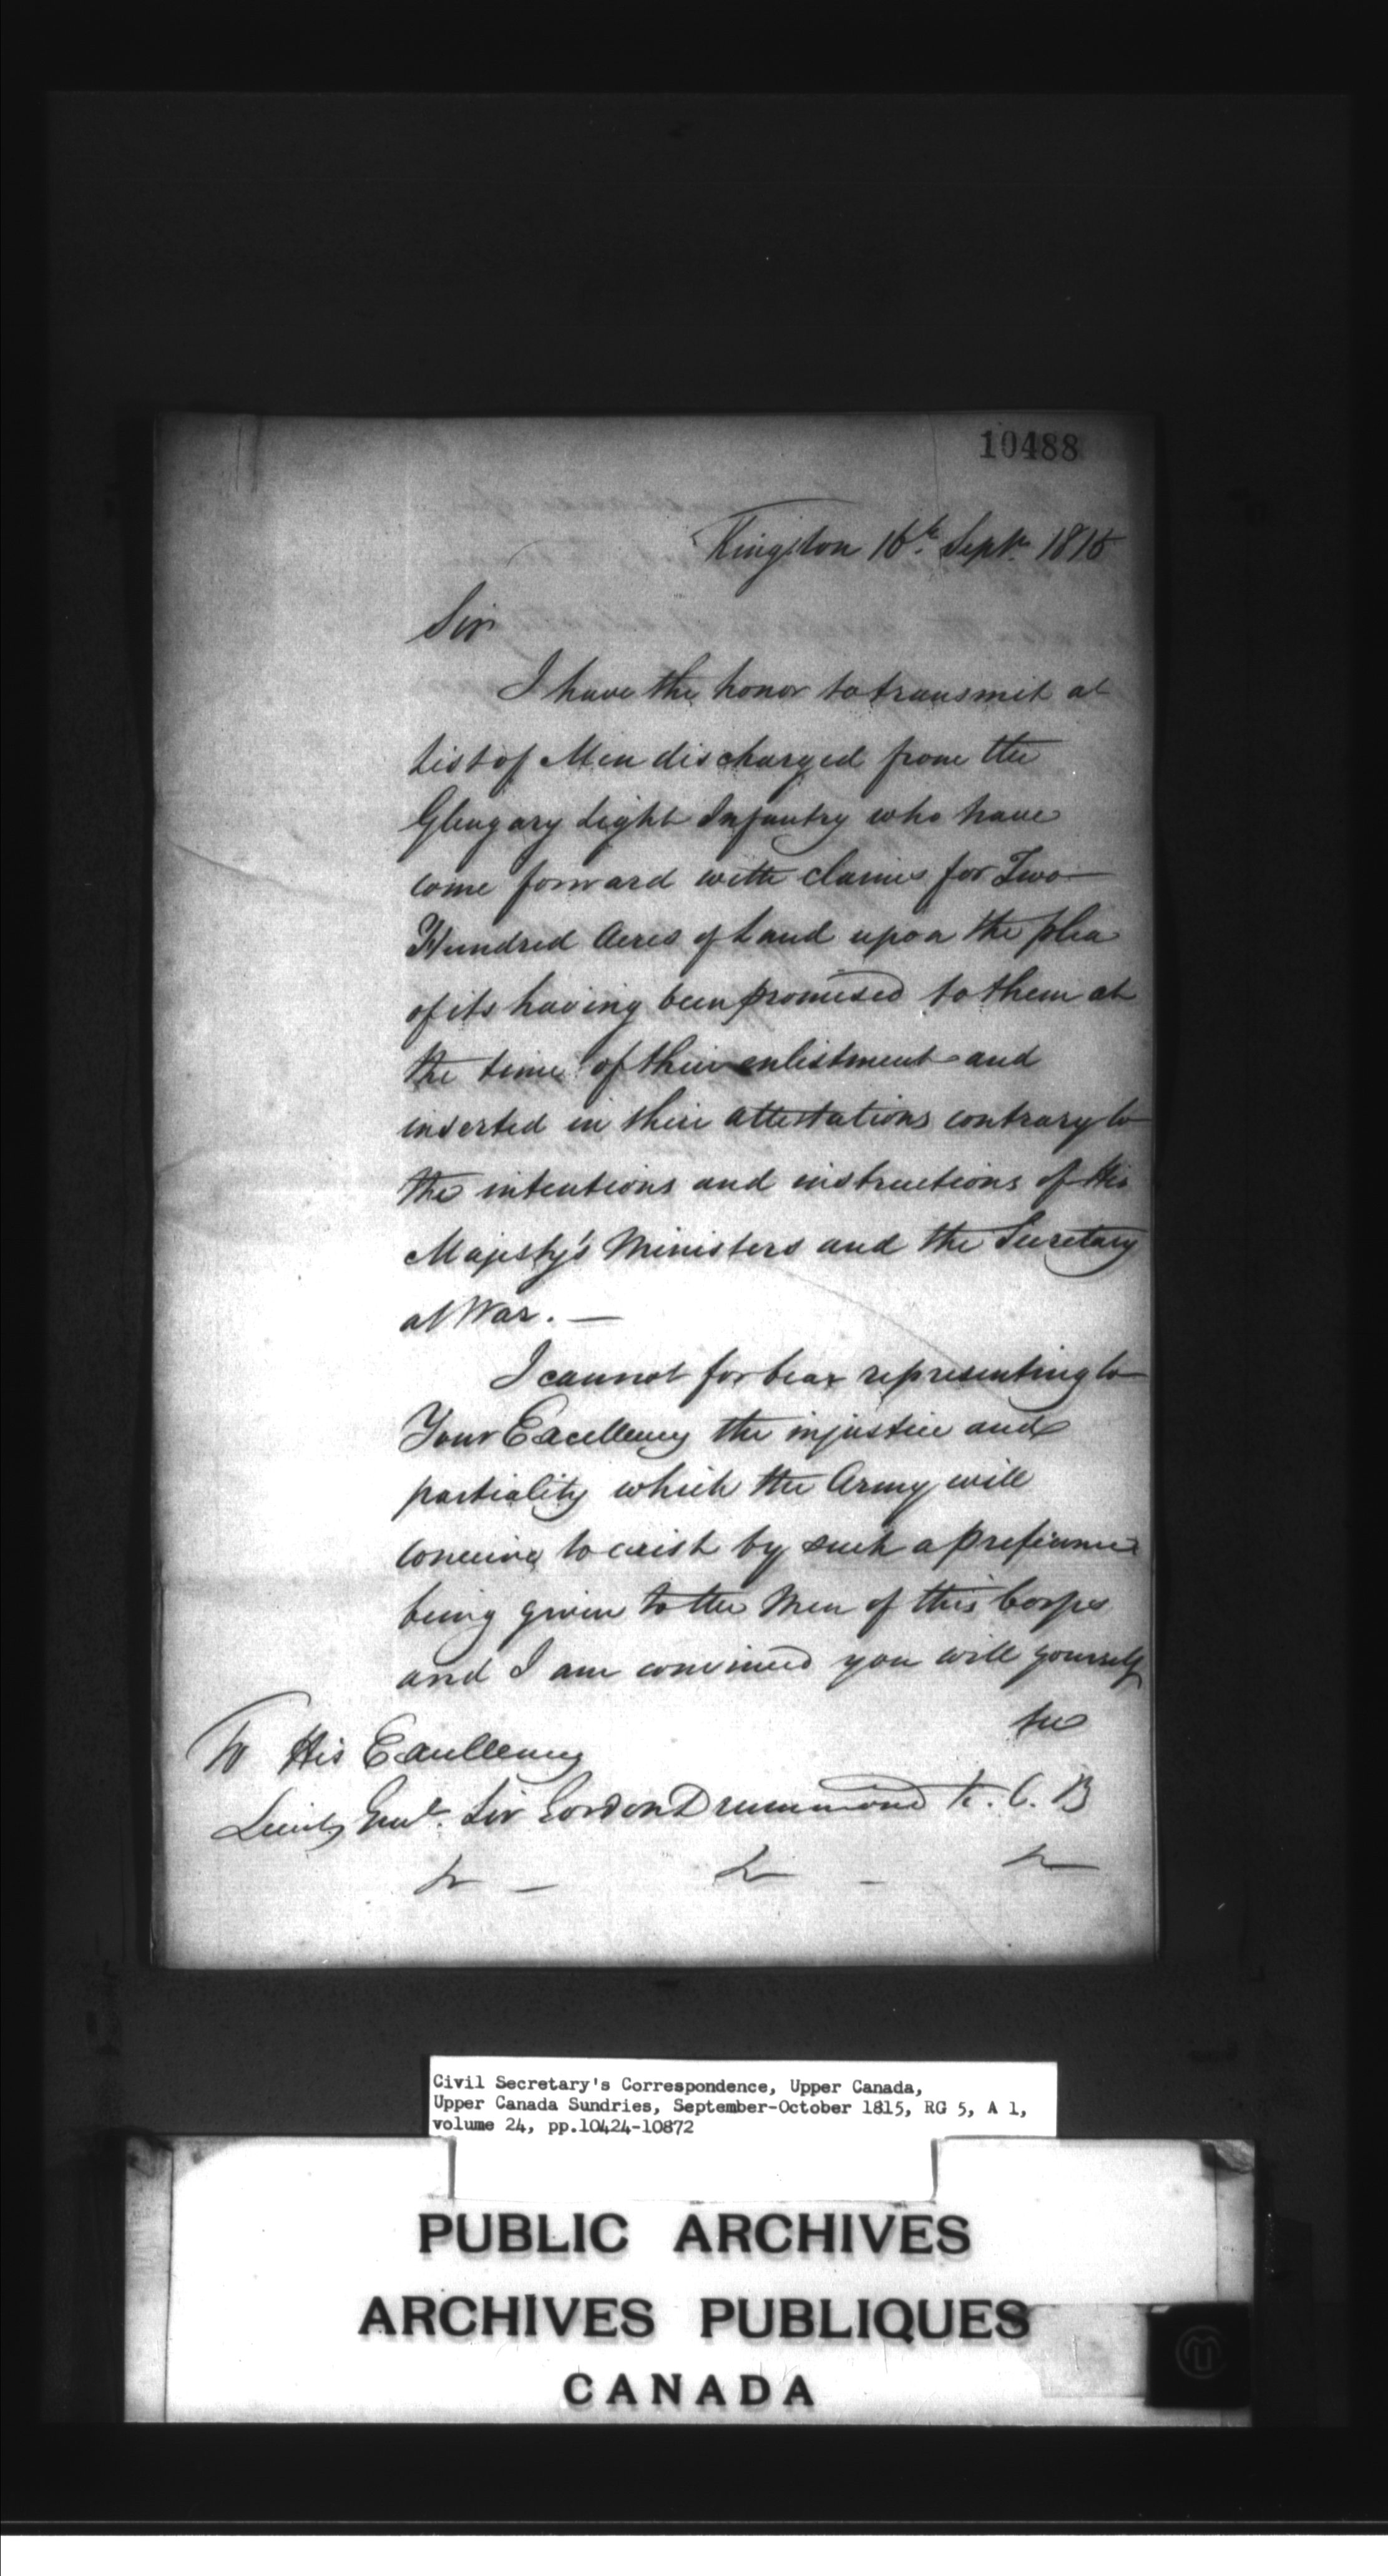 10488
Kingston 16th. Septr. 1815
Sir
I have the honor to transmit a
List of Men discharged from the
Glengary Light Infantry who have
come forward with claims for Two
Hundred Acres of Land upon the plea
of its having been promised to them at
the time of their enlistment and
inserted in their attestations contrary to
the intentions and instructions of His
Majesty's Ministers and the Secretary
at War. —
I cannot forbear representing to
Your Excellency the injustice and
partiality which the Army will
conceive to exist by such a preference
being given to the Men of this Corps
and I am convinced you will yourself
see
To His Excellency
Lieut. Genl. Sir Gordon Drummond K. C. B
&c — &c — &c
Civil Secretary's Correspondence, Upper Canada,
Upper Canada Sundries, September-October 1815, RG 5, A 1,
volume 24, pp.10424-10872
PUBLIC ARCHIVES
ARCHIVES PUBLIQUES
CANADA